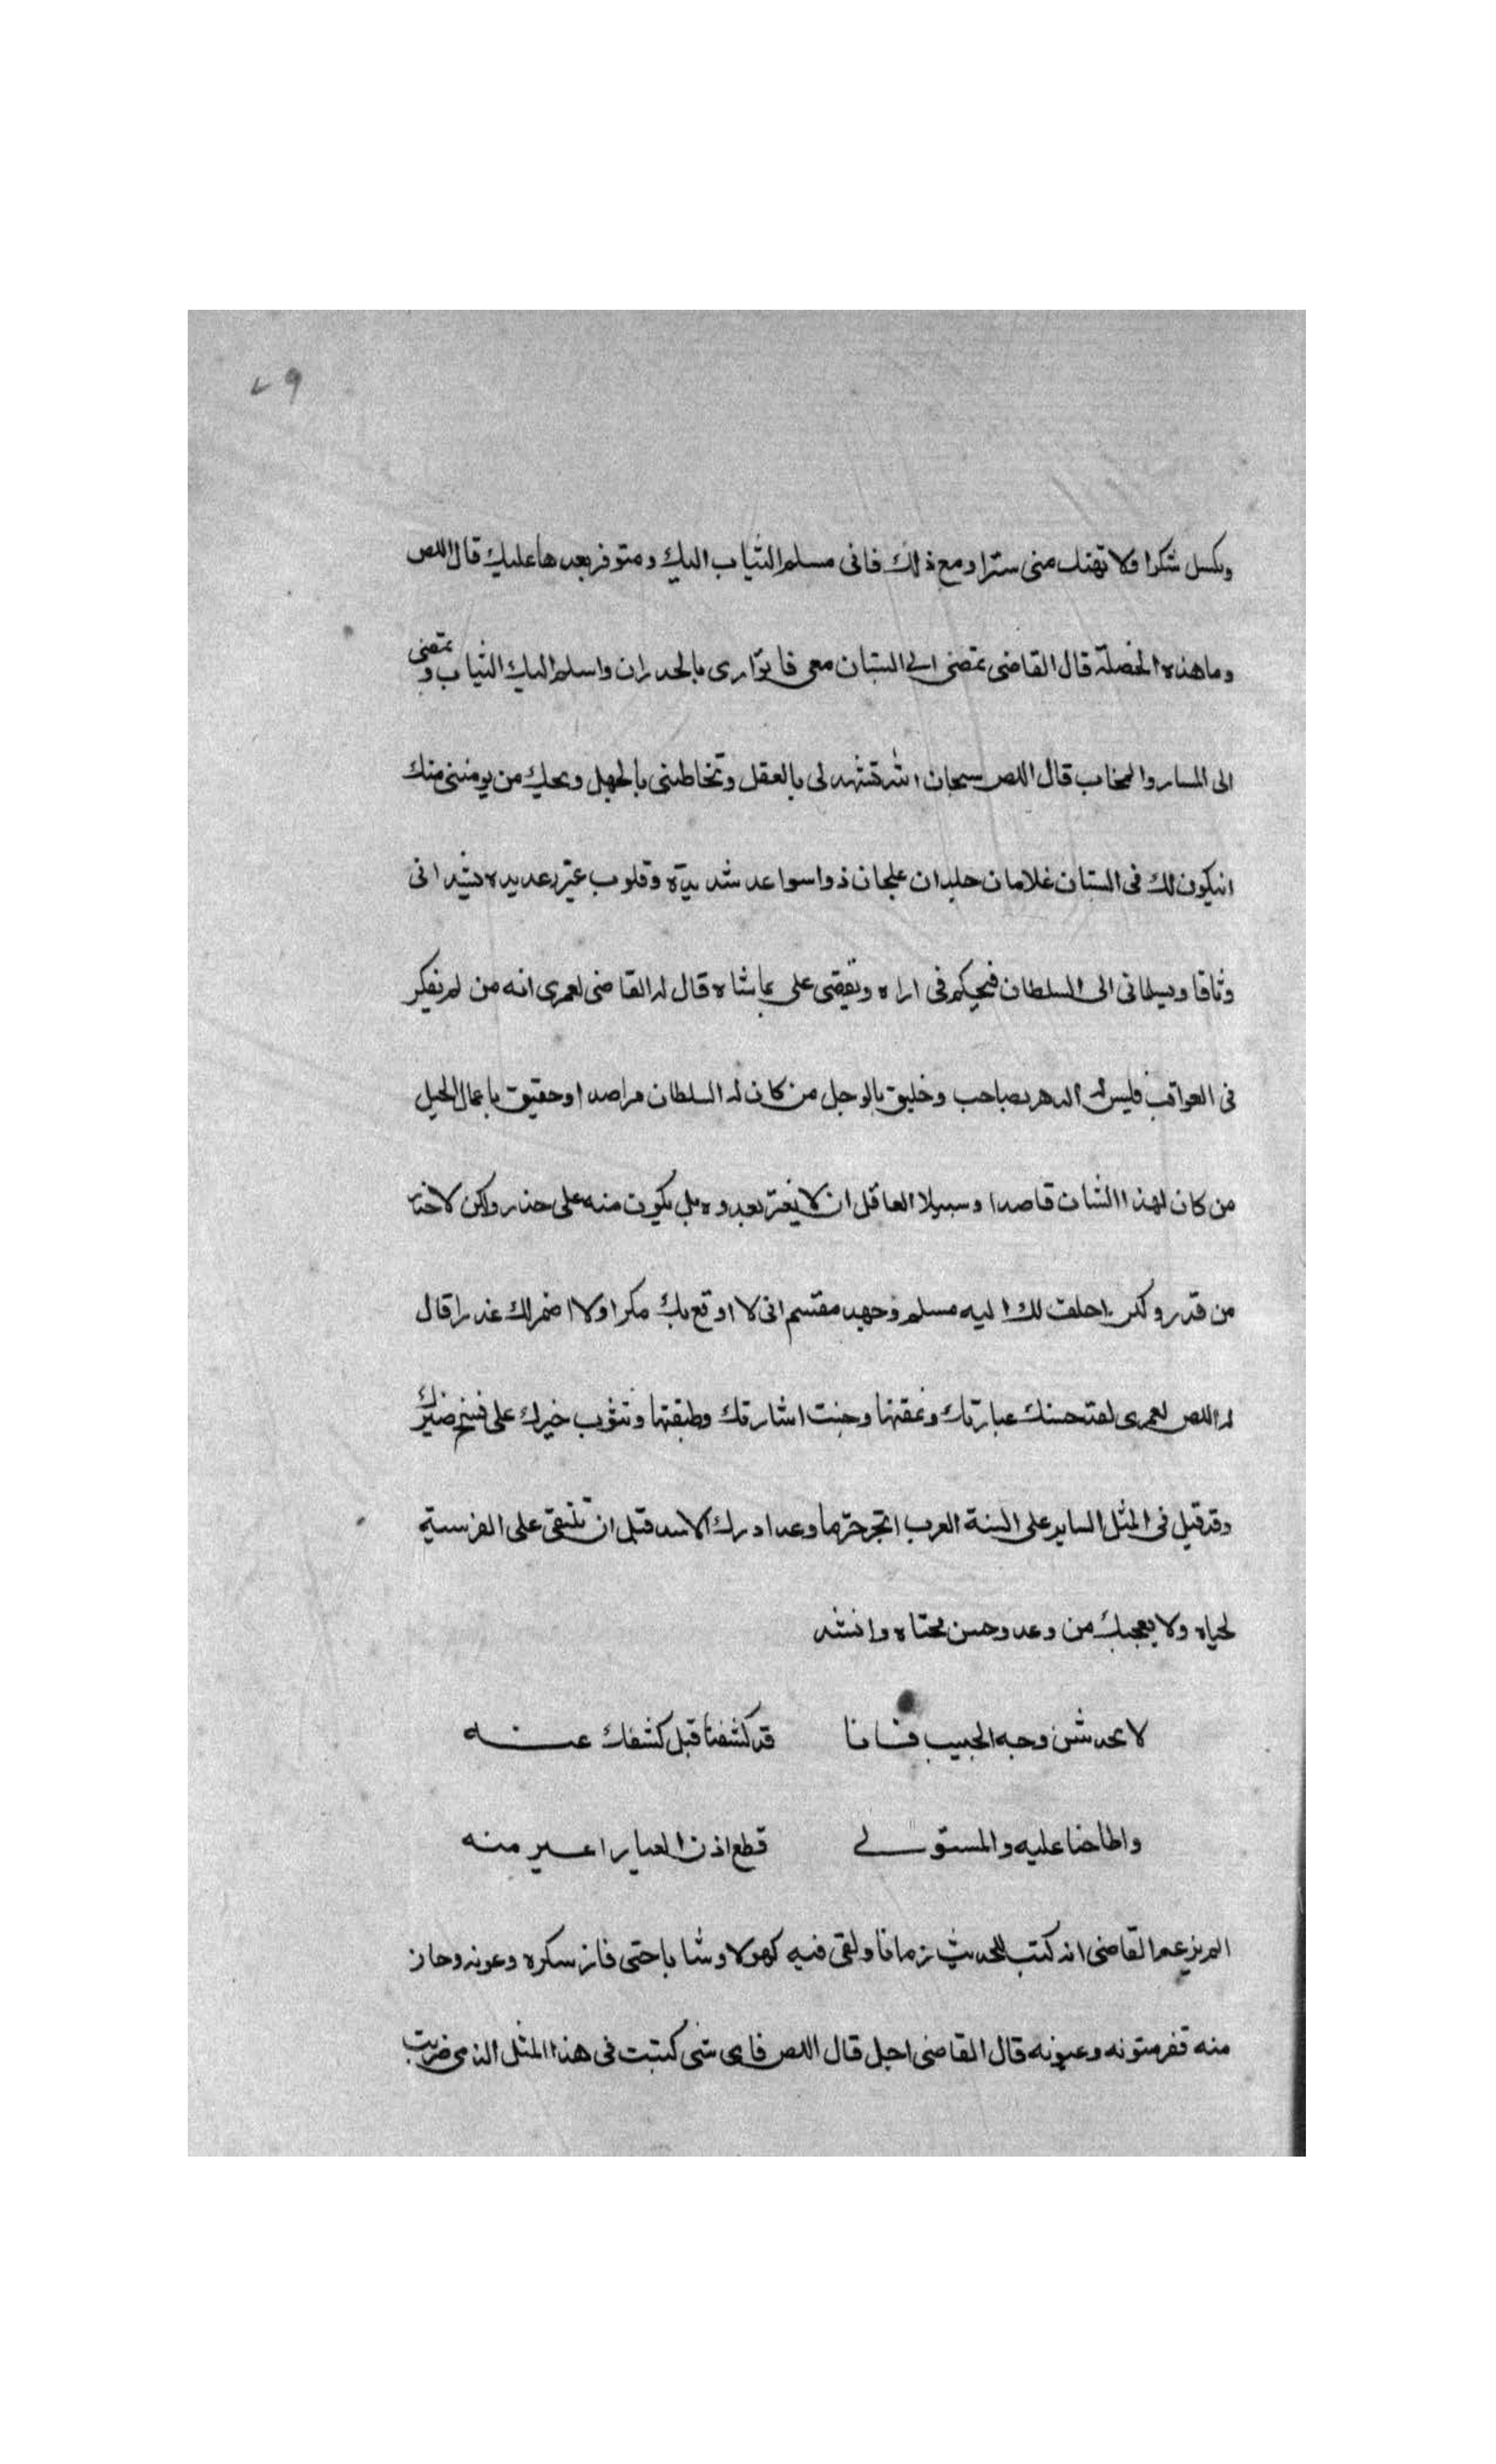 ٧٩
وتكسل شكرا ولا تهتك مني سترا ومع ذلك فاني مسلم الثياب اليك ومتوفر بعدها عليك قال اللص
وما هذه الخصلة قال القاضي تمضي الى البستان معي فاتوارى بالجدران واسلم اليك الثياب وتمضي
الى المسار والمحاب قال اللص سبحان الله تشهد لي بالعقل وتخاطبني بالجهل ويحك من يومنني منك
ان يكون لك في البستان غلامان جلدان علجان ذوا سواعد شديدة وقلوب غير رعديده يشداني
وثاقا ويسلماني الى السلطان فيحكم في اراه ويقضي علي بما شاه قال له القاضي لعمري انه من لم يفكر
في العواقب فليس له الدهر بصاحب وخليق بالوجل من كان له السلطان مراصدا وحقيق باعمال الحيل
من كان لهذا الشان قاصدا وسبيلا العاقل ان لا يغتر بعدوه بل يكون منه على حذر ولكن لا حذر
من قدر ولكن احلف لك اليه مسلم وجهد مقتسم اني لا اوقع بك مكرا ولا اضمر لك غدرا قال
له اللص لعمري لقد حسنت عبارتك ونمقتها وحسنت اشارتك وطبقتها ونثرت خيرك على فخ ضيرك
وقد قيل في المثل الساير على السنة العرب انجز حر ما وعد ادرك الاسد قبل ان تلتقي على الفرسية
لحياه ولا يعجبك من وعد وحسن محياه وانشد
لا تخدشن وجه الحبيب فانا قد كشفنا قبل كشفك عنه
واطلعنا عليه والمستولي قطع اذن العيار اعير منه
الم يزعم القاضي انه كتب الحديث زمانا ولقي فيه كهولا وشبابا حتى فاز سكره وعونه وحاز
منه فقر متونه وعيونه قال القاضي اجل قال اللص فاي شي كتبت في هذا المثل الذي ضربت